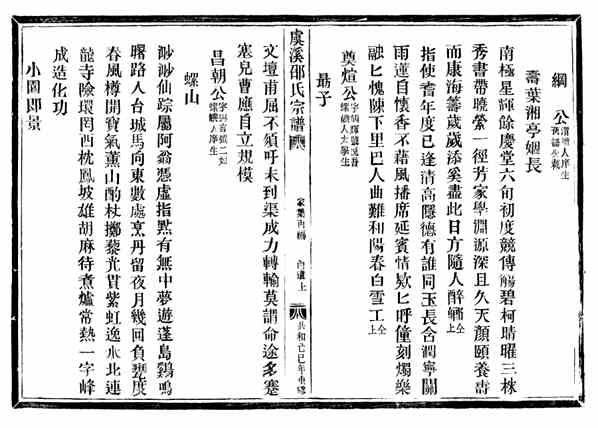 綱 公
壽葉湘亭姻長
南極星輝餘慶堂六旬初度競傳觴碧柯晴曜三株
秀書帶曉縈一徑芳家學淵源深且久天顏頤養壽
而康海籌歲歲添奚盡此日方隨人醉觴仝上
指使耆年度已逢清高隱德有誰同玉長含潤寧關
雨蓮自懷香不藉風播席延賓情欵匕呼僮刻燭樂
融匕愧陳下里巴人曲難和陽春白雪工仝上
奠煊公
最子
虞溪邵氏宗譜
共和己巳年重修
文壇甫屈不須吁未到渠成力轉輸莫謂命途多蹇
塞兒曹應自立規模
昌朝公
螺山
渺渺仙踪屬阿翁憑虛指點有無中夢遊蓬島鷄鳴
曙路入台城馬向東數處烹丹留夜月幾回負甕度
春風樽開寶氣薰山酌杖擲藜光貫紫虹逸水北連
龍寺險環岡西枕鳳坡雄胡麻待煮爐常熱一字峰
成造化功
小園即景